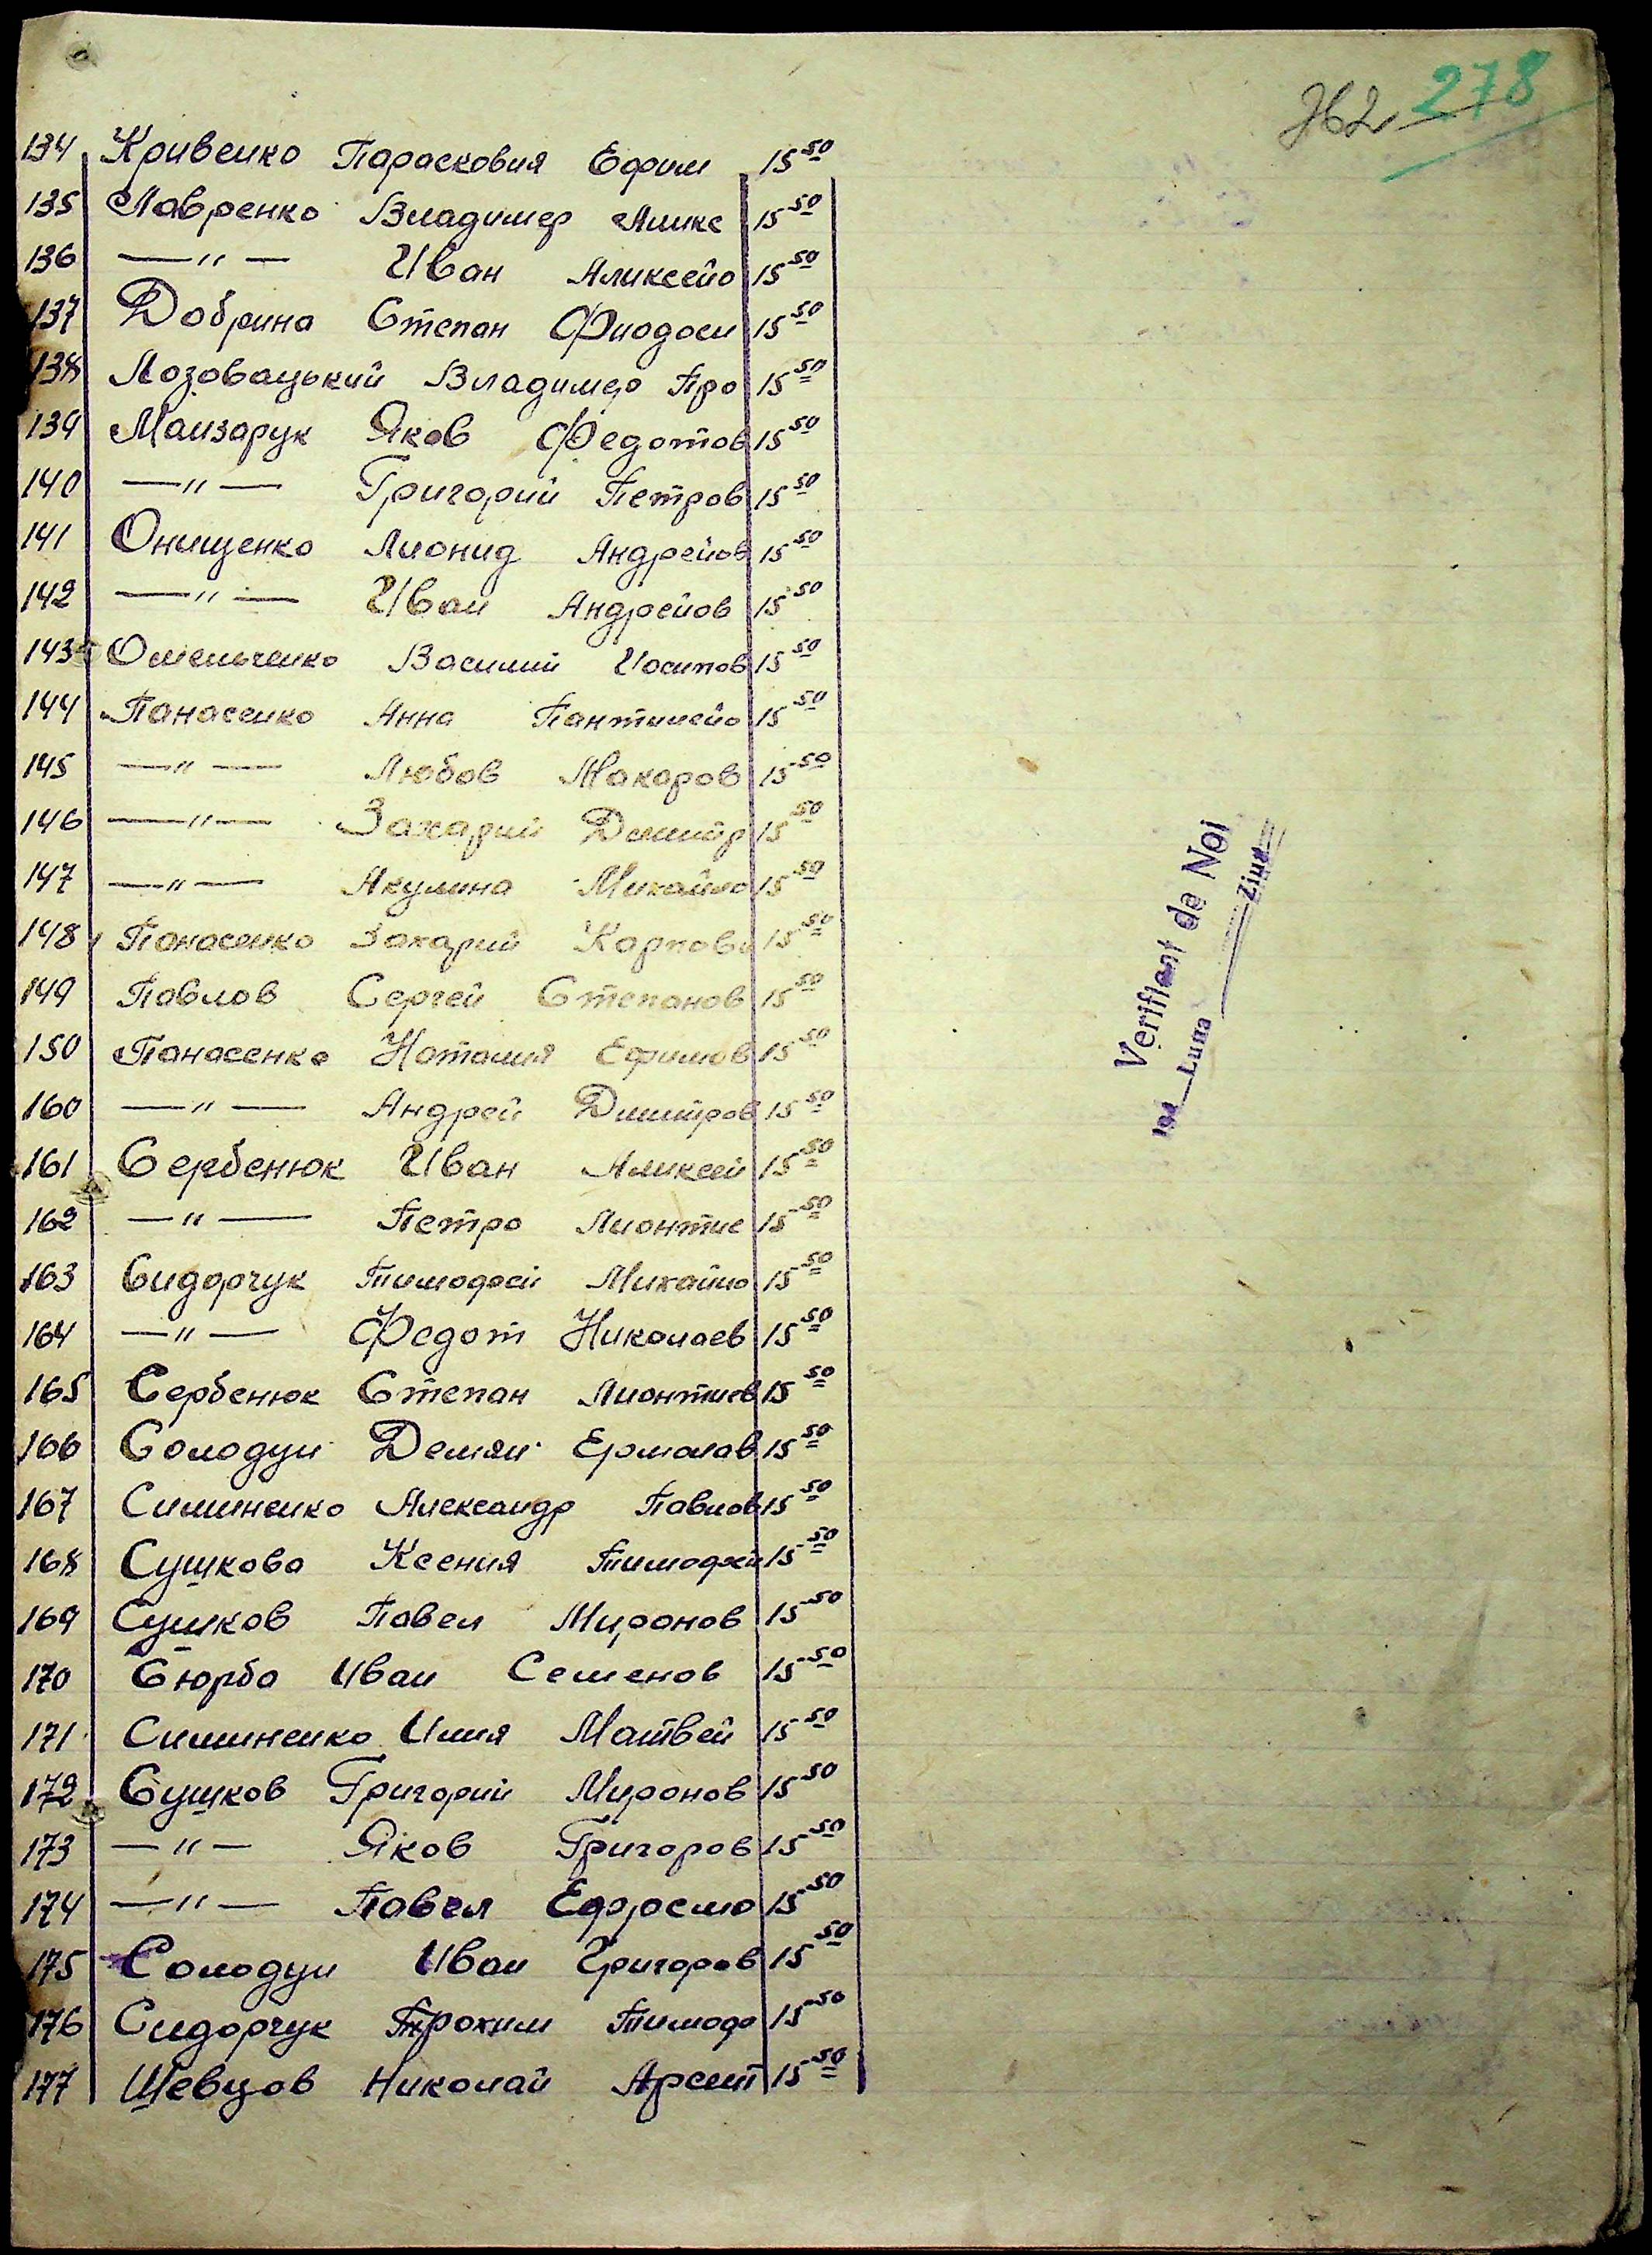 278
134 Кривенко Парасковия Ефим 15 50
135 Лавренко Владимер Аликс 15 50
136 —"— Иван Аликсейо 15 50
137 Добрина Степан Фиодоси 15 50
138 Лозовацький Владимер Про 15 50
139 Манзарук Яков Федотов 15 50
140 —"— Григорий Петров 15 50
141 Онищенко Лионид Андрейов 15 50
142 —"— Иван Андрейов 15 50
143 Омельченко Василий Иосипов 15 50
144 Панасенко Анна Пантилейо 15 50
145 —"— Любов Макаров 15 50
146 —"— Захарий Димитр 15 50
147 —"— Акулина Михайло 15 50
148 Панасенко Захарий Карпови 15 50
149 Павлов Сергей Степанов 15 50
150 Панасенко Наталия Ефимов 15 50
160 —"— Андрей Димитров 15 50
161 Сербенюк Иван Аликсей 15 50
162 —"— Петро Лионтие 15 50
163 Сидорчук Тимофей Михайло 15 50
164 —"— Федот Николаев 15 50
165 Сербенюк Степан Лионтиев 15 50
166 Солодун Демян Ермолав 15 50
167 Симиненко Александр Павлов 15 50
168 Сушкова Ксения Тимофей 15 50
169 Сушков Павел Миронов 15 50
170 Сюрба Иван Семенов 15 50
171 Симиненко Илия Матвей 15 50
172 Сушков Григорий Миронов 15 50
173 —"— Яков Григоров 15 50
174 —"— Павел Ефремо 15 50
175 Солодун Иван Григоров 15 50
176 Сидорчук Трохим Тимофе 15 50
177 Шевцов Николай Арент 15 50
Verifient de Noi
194 Luna Ziua